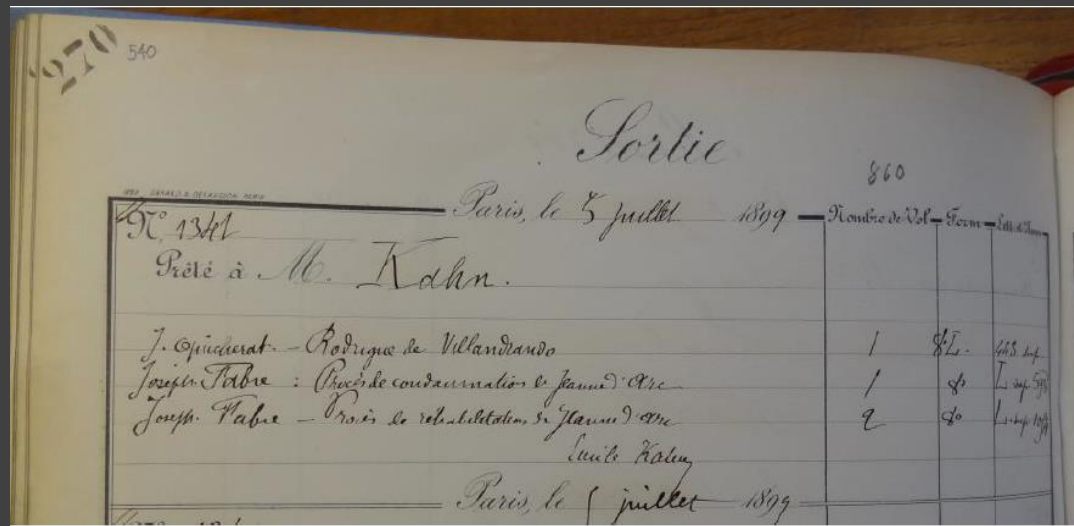 270 540
Sortie
860
Paris, le 5 juillet 1899 Nombre de Vol Form
N° 1341
Prêté à M. Kahn.
J. Quicherat. - Rodrigue de Villandrando 1 8° L. 443 sup
Joseph Fabre : Procès de condamnation de Jeanne d'Arc 1 8° L sup
Joseph Fabre - Procès de réhabilitation de Jeanne d'Arc 2 8° L sup
Emile Kahn
Paris, le 5 juillet 1899